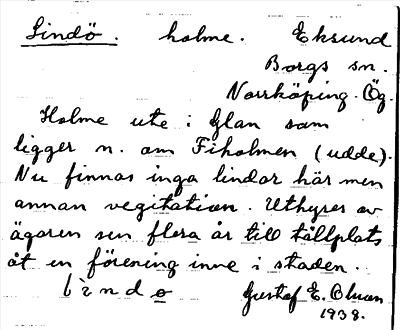 Lindö. holme. Eksund
Borgs sn.
Norrköping. Ög.
Holme ute i Glan som
ligger n. om Fiholmen (udde).
Nu finnas inga lindar här men
annan vegitation. Uthyres av
ägaren sen flera år till tällplats
åt en förening inne i staden.
lìndo
Gustaf E. Olsson
1938.